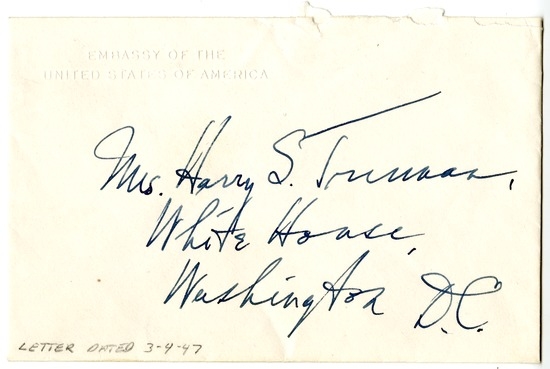 EMBASSY OF THE
UNITED STATES OF AMERICA
Mrs. Harry S. Truman,
White House,
Washington D.C.
LETTER DATED 3-4-47